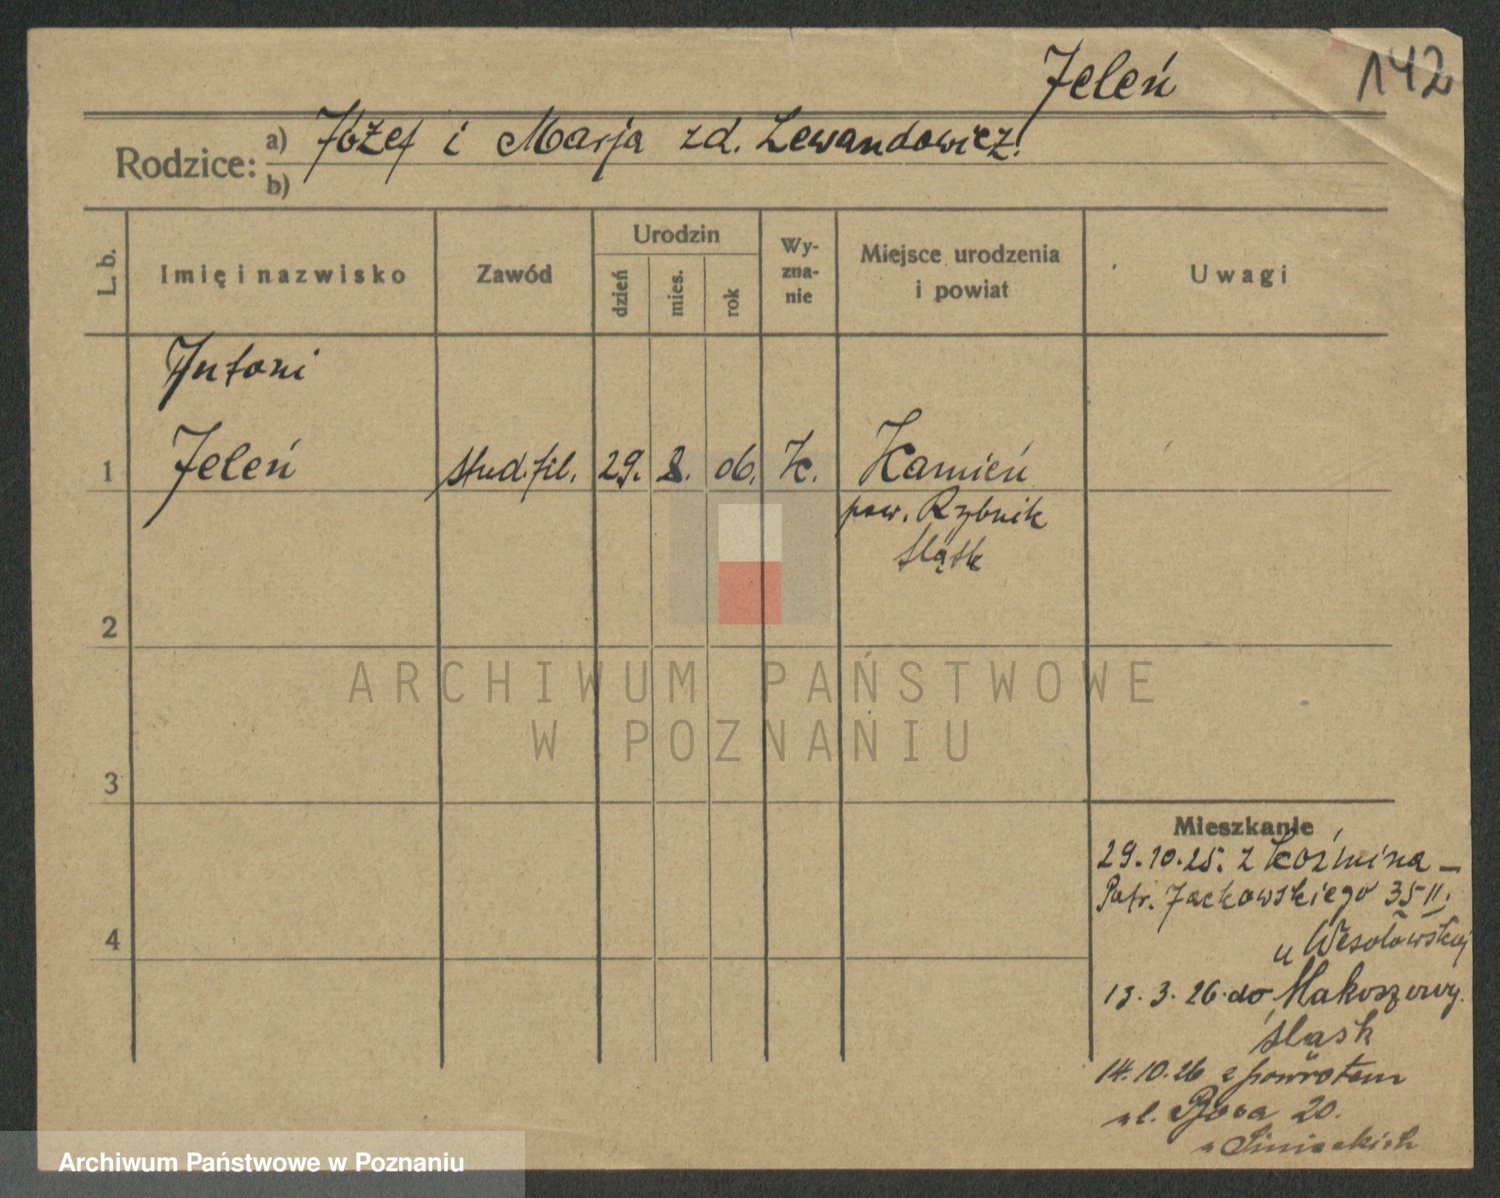 Jeleń 142
Rodzice: a) Józef i Marja zd. Lewandowicz.
b)
L. b.
Imię i nazwisko
Zawód
Urodzin
dzień
mies.
rok
Wy-
zna-
nie
Miejsce urodzenia
i powiat
Uwagi
Antoni
1 Jeleń stud. fil. 29. 8. 06. K. Kamień
pow. Rybnik
Śląsk
2
ARCHIWUM PAŃSTWOWE
W POZNANIU
3
Mieszkanie
29.10.25. z Koźmina –
Patr. Jackowskiego 35 II.
u Wesołowskiej
13.3.26 do Makoszowy.
Śląsk
4
14.10.26 z powrotem
ul. 20.
Archiwum Państwowe w Poznaniu